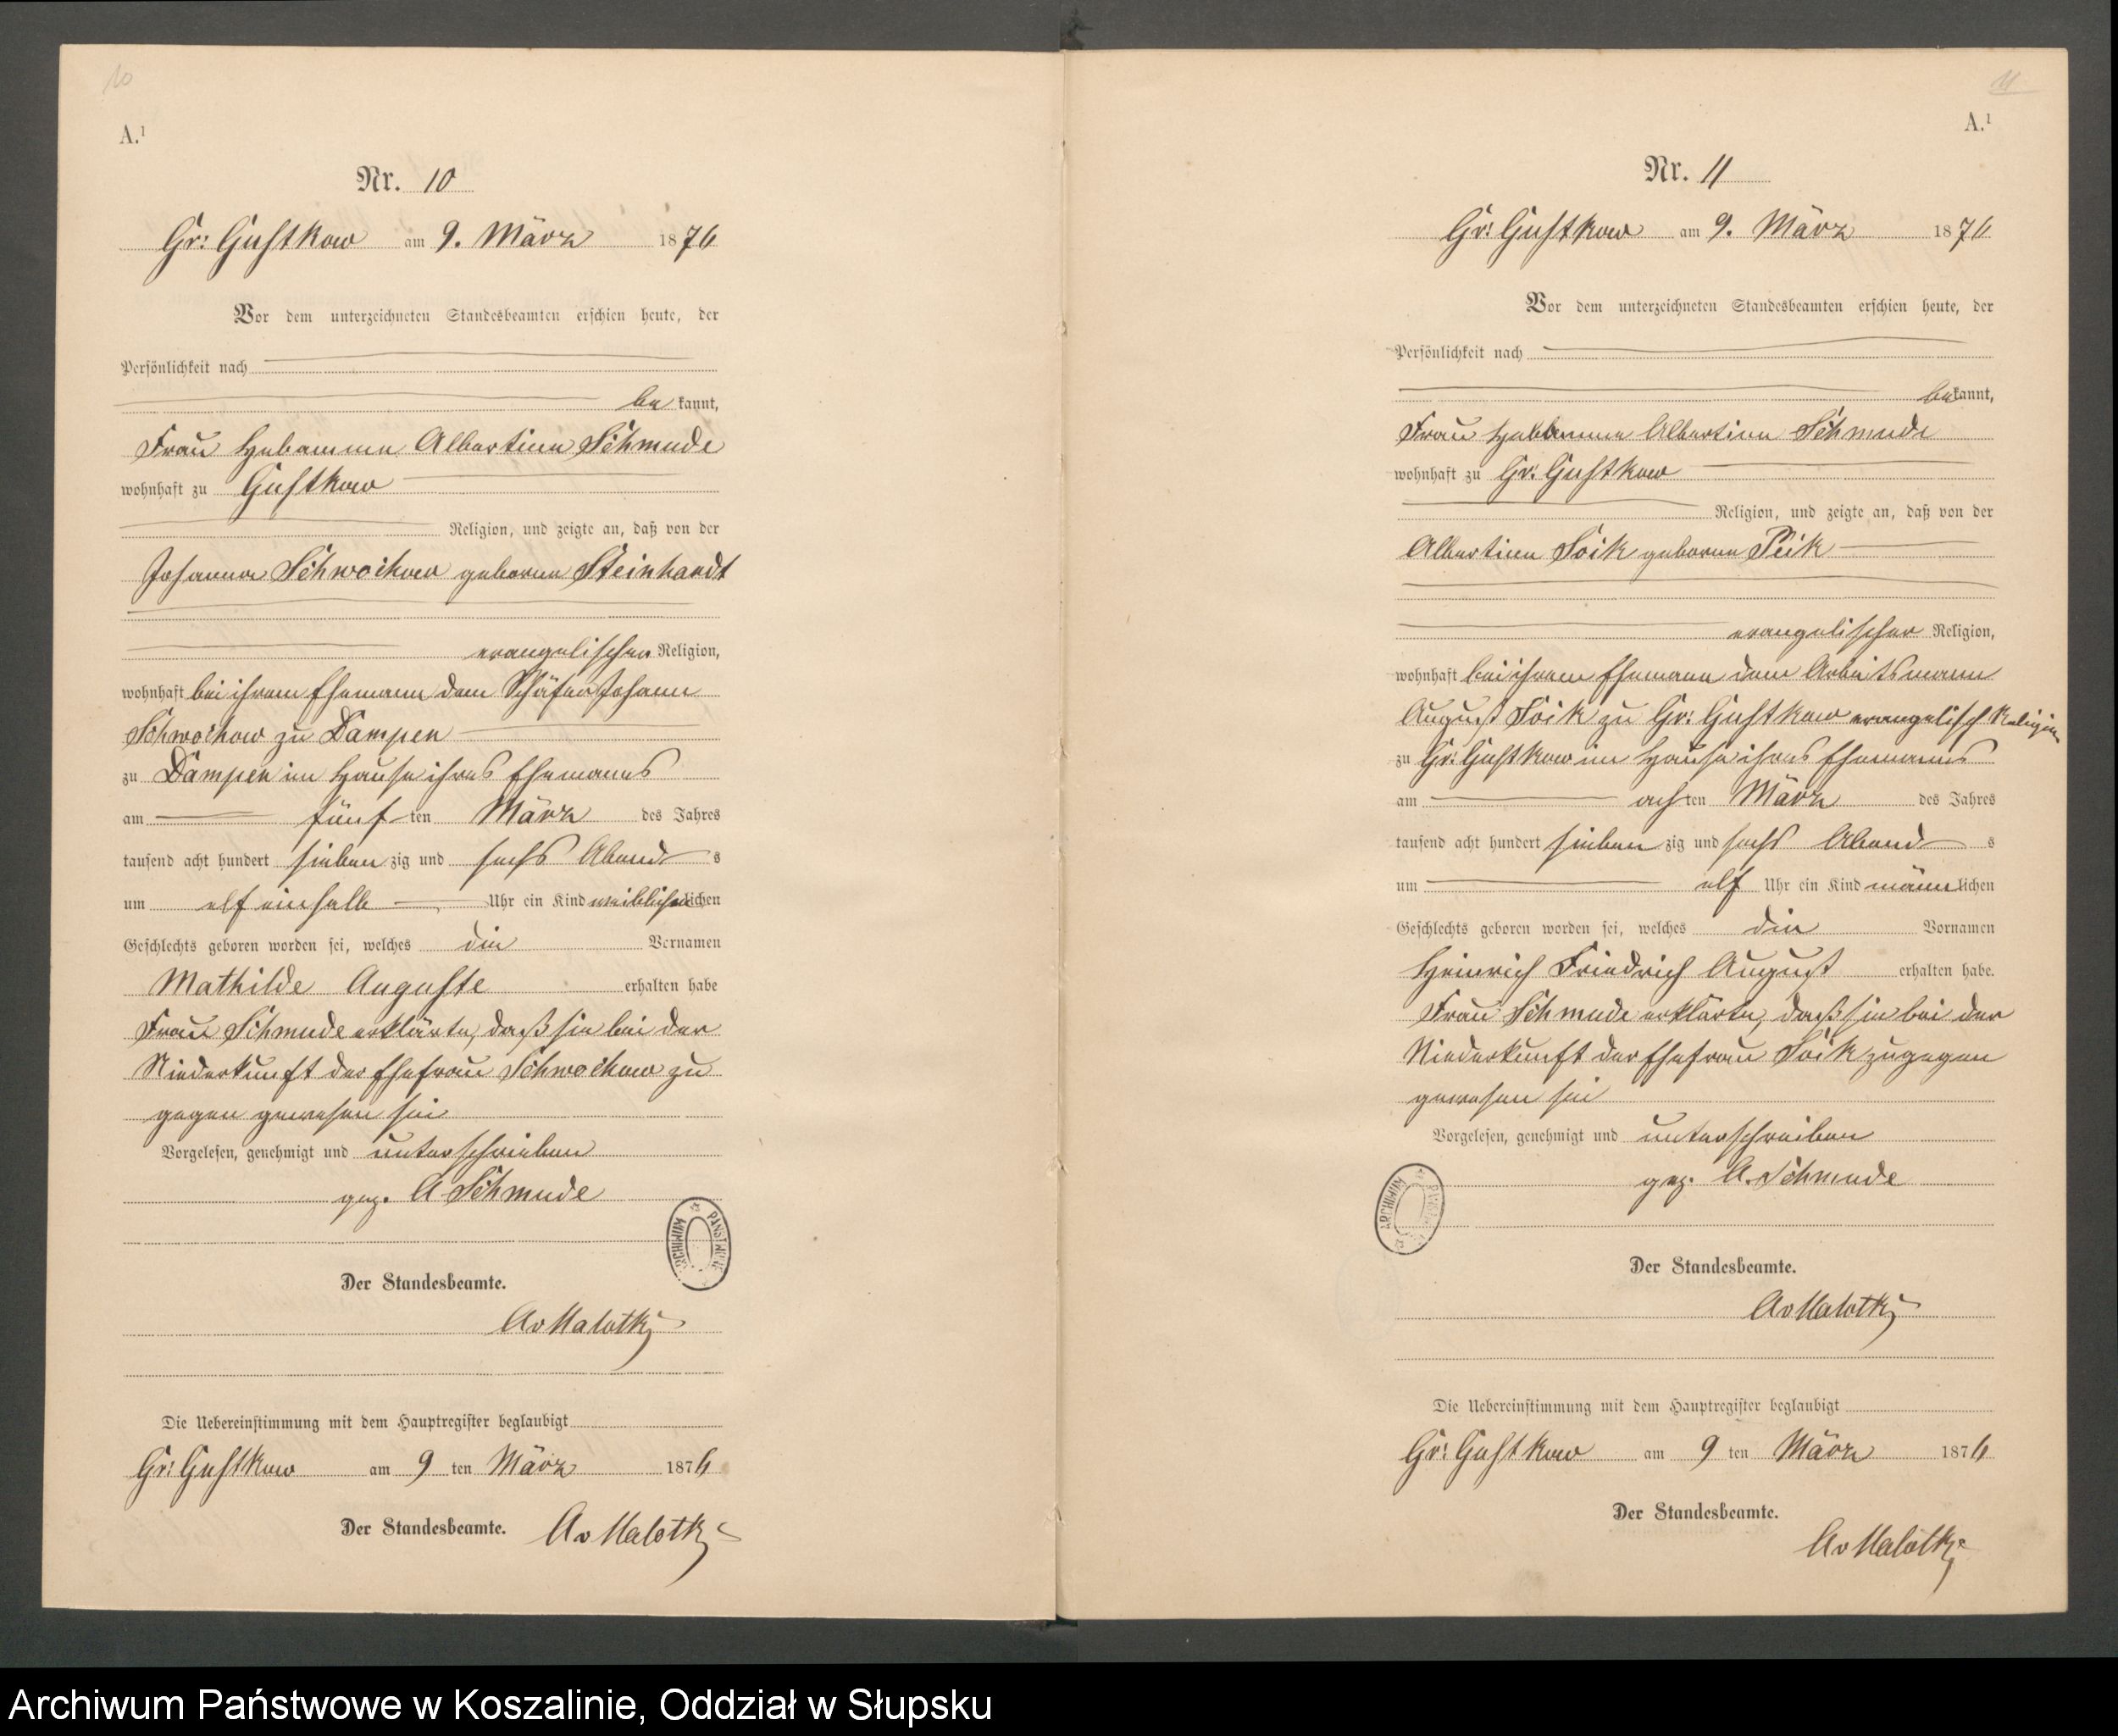 10
A.¹
Nr. 10
Gr: Gustkow am 9. März 1876
Vor dem unterzeichneten Standesbeamten erschien heute, der
Persönlichkeit nach
bekannt,
Frau Hebamme Albertine Schmude
wohnhaft zu Gustkow
Religion, und zeigte an, daß von der
Johanna Schwochow geborne Steinhardt
evangelischer Religion,
wohnhaft bei ihrem Ehemann dem Schäfer Johann
Schwochow zu Dampen
zu Dampen im Hause ihres Ehemanns
am fünften März des Jahres
tausend acht hundert siebenzig und sechs Abends
um elf einhalb Uhr ein Kind weiblichen
Geschlechts geboren worden sei, welches die Vornamen
Mathilde Auguste erhalten habe
Frau Schmude erklärte, daß sie bei der
Niederkunft der Ehefrau Schwochow zu
gegen gewesen sei
Vorgelesen, genehmigt und unterschrieben
gez. A Schmude
ARCHIWUM PAŃSTWOWE
Der Standesbeamte.
AvMalotki
Die Uebereinstimmung mit dem Hauptregister beglaubigt
Gr: Gustkow am 9 ten März 1876
Der Standesbeamte. AvMalotki
11
A.¹
Nr. 11
Gr: Gustkow am 9. März 1876
Vor dem unterzeichneten Standesbeamten erschien heute, der
Persönlichkeit nach
bekannt,
Frau Hebamme Albertine Schmude
wohnhaft zu Gr: Gustkow
Religion, und zeigte an, daß von der
Albertine Soik geborne Peik
evangelischer Religion,
wohnhaft bei ihrem Ehemann dem Arbeitsmann
August Soik zu Gr: Gustkow evangelisch Religion
zu Gr: Gustkow im Hause ihres Ehemanns
am achten März des Jahres
tausend acht hundert siebenzig und sechs Abends
um elf Uhr ein Kind männlichen
Geschlechts geboren worden sei, welches die Vornamen
Heinrich Friedrich August erhalten habe.
Frau Schmude erklärte, daß sie bei der
Niederkunft der Ehefrau Soik zugegen
gewesen sei
Vorgelesen, genehmigt und unterschreiben
gez. A. Schmude
ARCHIWUM
Der Standesbeamte.
AvMalotki
Die Uebereinstimmung mit dem Hauptregister beglaubigt
Gr: Gustkow am 9 ten März 1876
Der Standesbeamte.
AvMalotki
Archiwum Państwowe w Koszalinie, Oddział w Słupsku